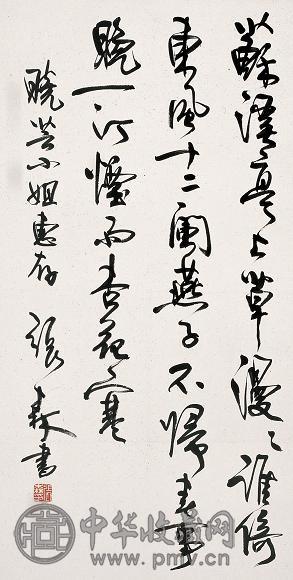 苏溪亭上草漫漫谁倚
東風十二闌燕子不歸春事
晚一汀煙雨杏花寒
晓芸小姐惠存 張森書
中华收藏网
www.pmv.cn